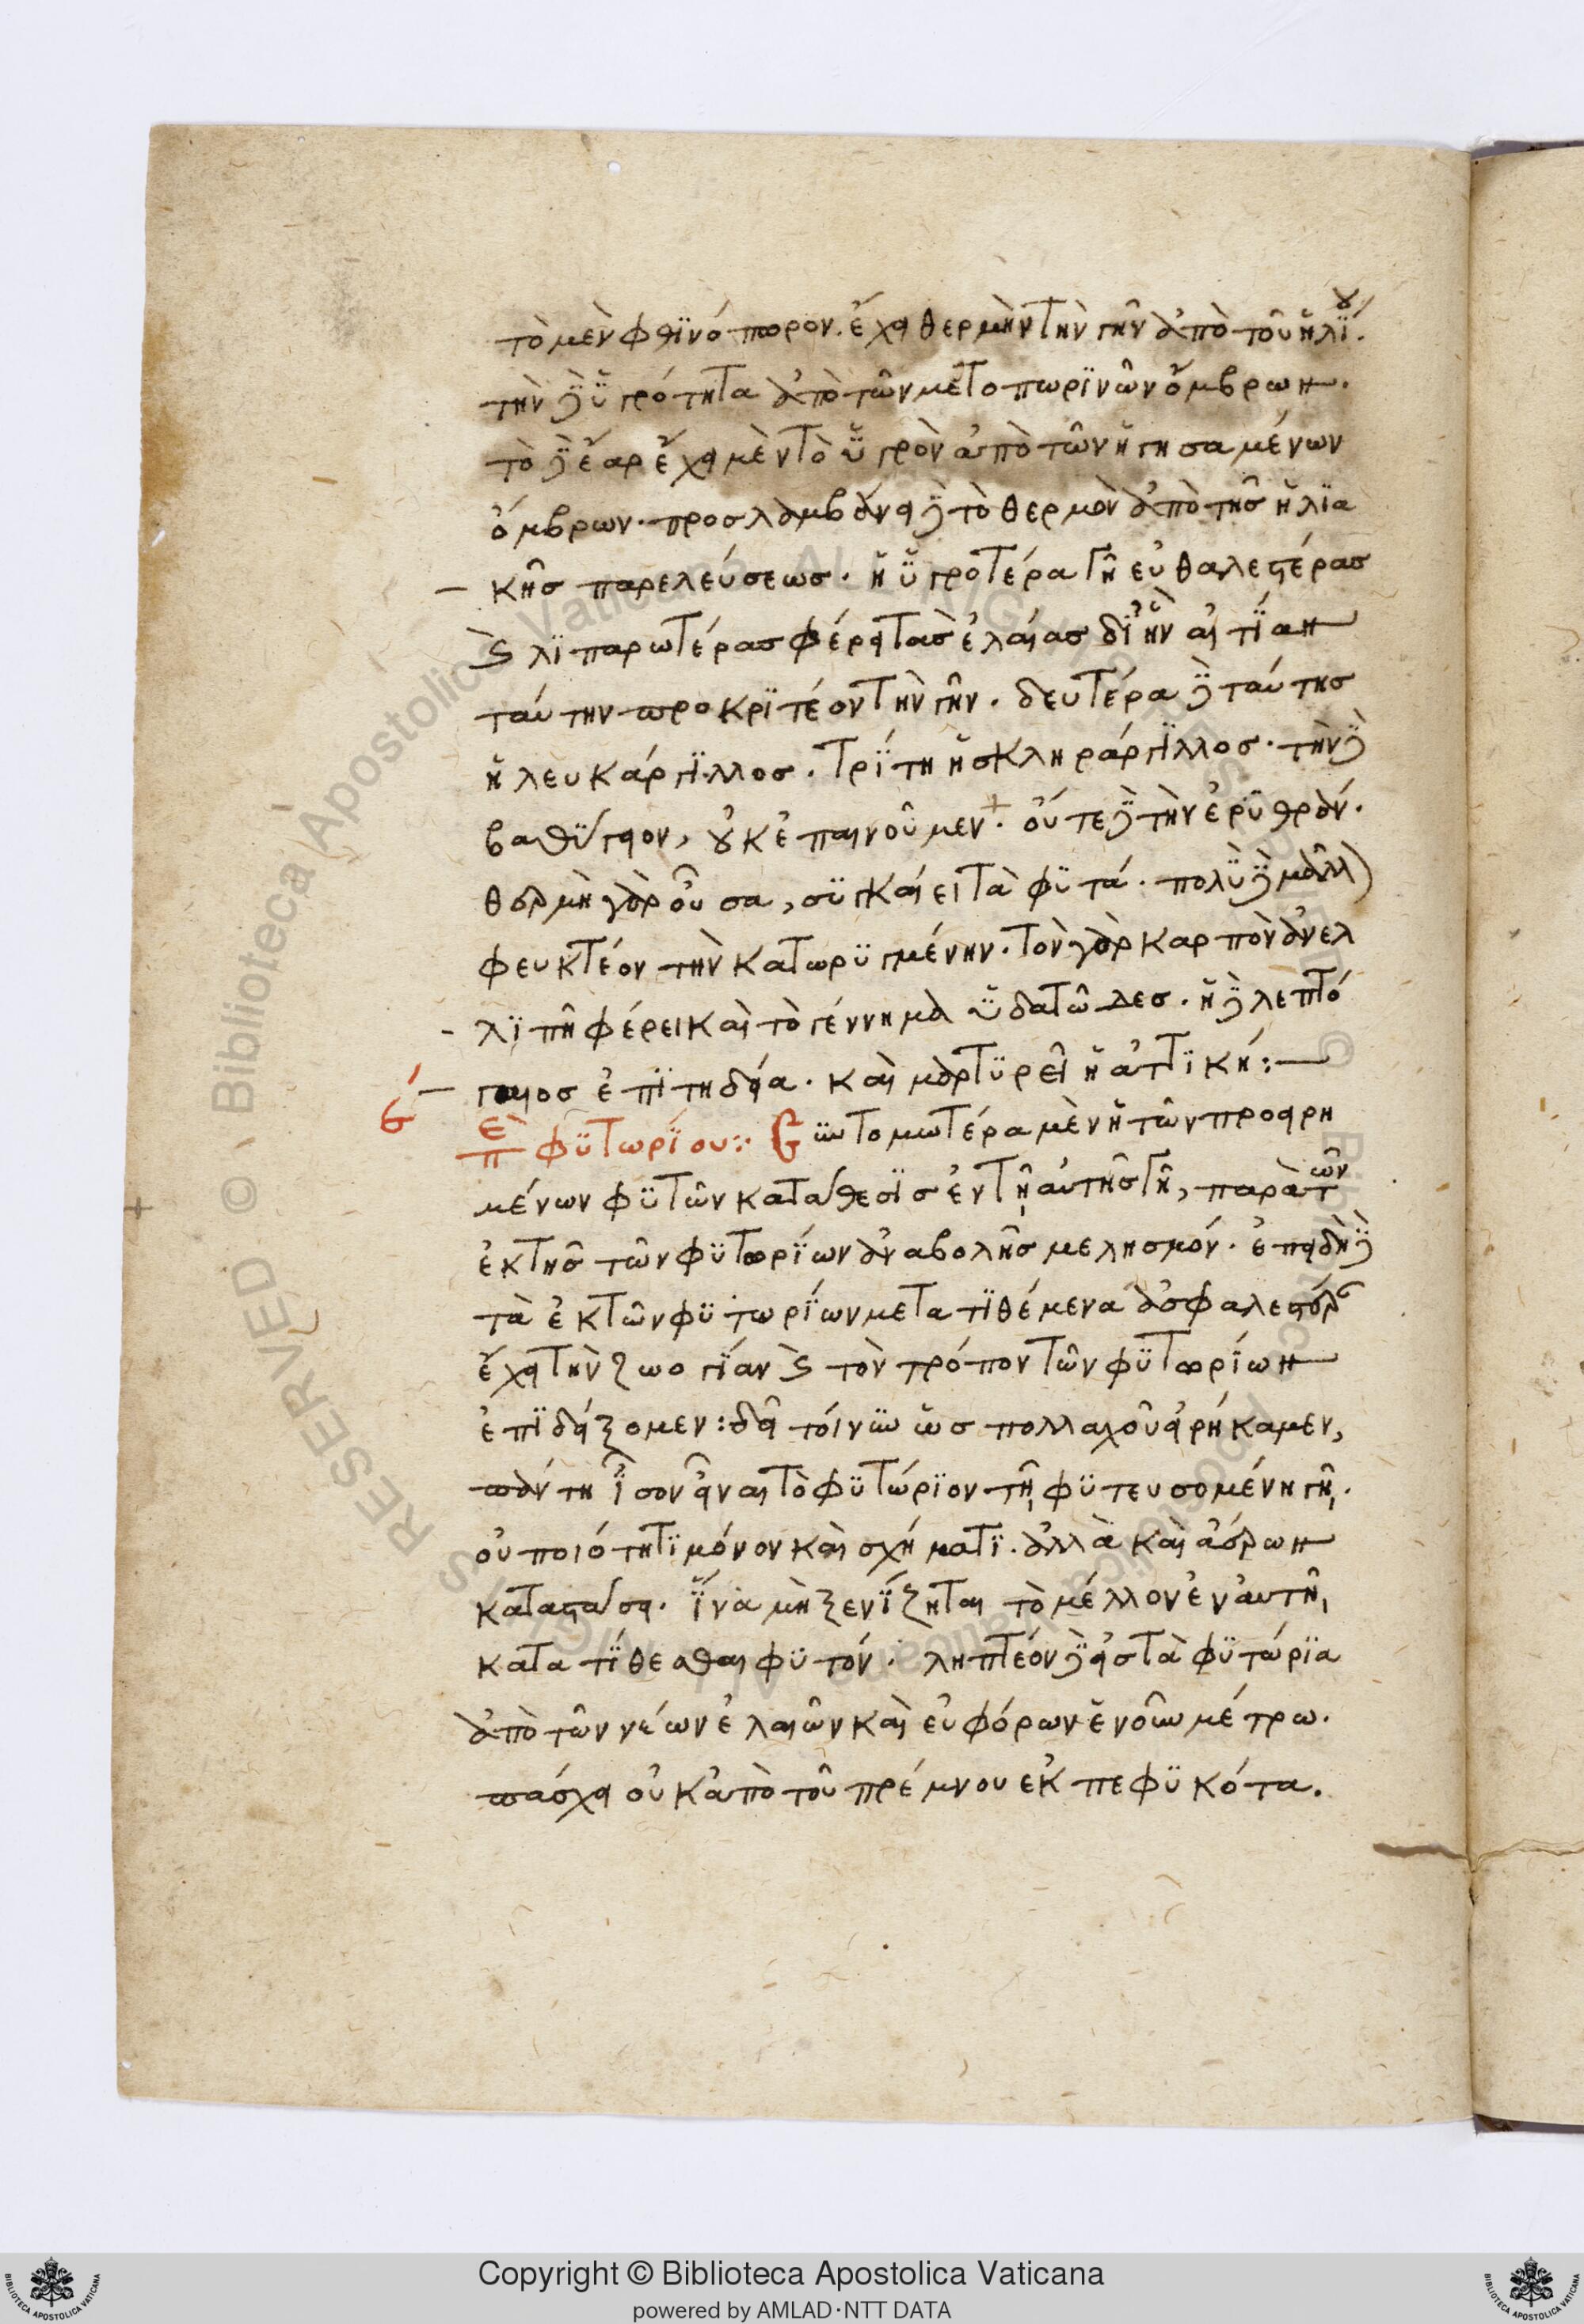 τὸ μὲν φθϊνόπωρον. ἔχει θερμὴν τὴν γῆν ἀπὸ τοῦ ἡλΐου.
τὴν δὲ ὑγρότητα ἀπὸ τῶν μετοπωρϊνῶν ὄμβρων.
τὸ δὲ ἔαρ ἔχει μὲν τὸ ὑγρὸν ἀπὸ τῶν ἡγησαμένων
ὄμβρων. προσλαμβάνει δὲ τὸ θερμὸν ἀπὸ τῆς ἡλϊα
κῆς παρελεύσεως. ἡ ὑγροτέρα γῆ εὐθαλεστέρας
καὶ λϊπαρωτέρας φέρει τὰς ἐλαίας δϊ ἣν αἰτΐαν
ταύτην προκρϊτέον τὴν γῆν. δευτέρα δὲ ταύτης
ἡ λευκάργϊλλος. τρΐτη ἡ σκληράργϊλλος. τὴν δὲ
βαθΰγειον, οὐκ ἐπαινοῦμεν. οὔτε δὲ τὴν ἐρϋθράν.
θερμὴ γὰρ οὖσα, συγκαίει τὰ φϋτά. πολὺ δὲ μᾶλλ
φευκτέον τὴν κατωρϋγμένην. τὸν γὰρ καρπὸν ἀνελ
λϊπῆ φέρει καὶ τὸ γέννημα ὑδατῶδες. ἡ δὲ λεπτό
γαιος ἐπϊτηδεία. καὶ μαρτϋρεῖ ἡ ἀττϊκή:
ϛ´ Περὶ φϋτωρΐου: Ευτομωτέρα μὲν ἡ τῶν προειρη
μένων φϋτῶν κατάθεσϊς ἐν τῇ αὐτῆς γῆ, παρὰ τῶν
ἐκ τῆς τῶν φϋτωρΐων ἀναβολῆς μελησμόν. ἐπειδὴ δὲ
τὰ ἐκ τῶν φϋτωρΐων μετατϊθέμενα ἀσφαλεστέραν
ἔχει τὴν ζωογΐαν καὶ τὸν τρόπον τῶν φϋτωρΐων
ἐπϊδείξομεν: δεῖ τοίνυν ὡς πολλαχοῦ εἰρήκαμεν,
πάντη ἶσον εἶναι τὸ φϋτώρϊον τῇ φϋτευσομένη γῇ.
οὐ ποιότητϊ μόνον καὶ σχήματϊ. ἀλλὰ καὶ ἀέρων
καταστάσει. ἵνα μὴ ξενΐζηται τὸ μέλλον ἐν αὐτῇ
κατατΐθεσθαι φϋτόν. ληπτέον δὲ εἰς τὰ φϋτώρϊα
ἀπὸ τῶν νέων ἐλαιῶν καὶ εὐφόρων ἐνοῦν μέτρω.
πάσχει οὐκ ἀπὸ τοῦ πρέμνου ἐκπεφϋκότα.
Copyright © Biblioteca Apostolica Vaticana
powered by AMLAD·NTT DATA